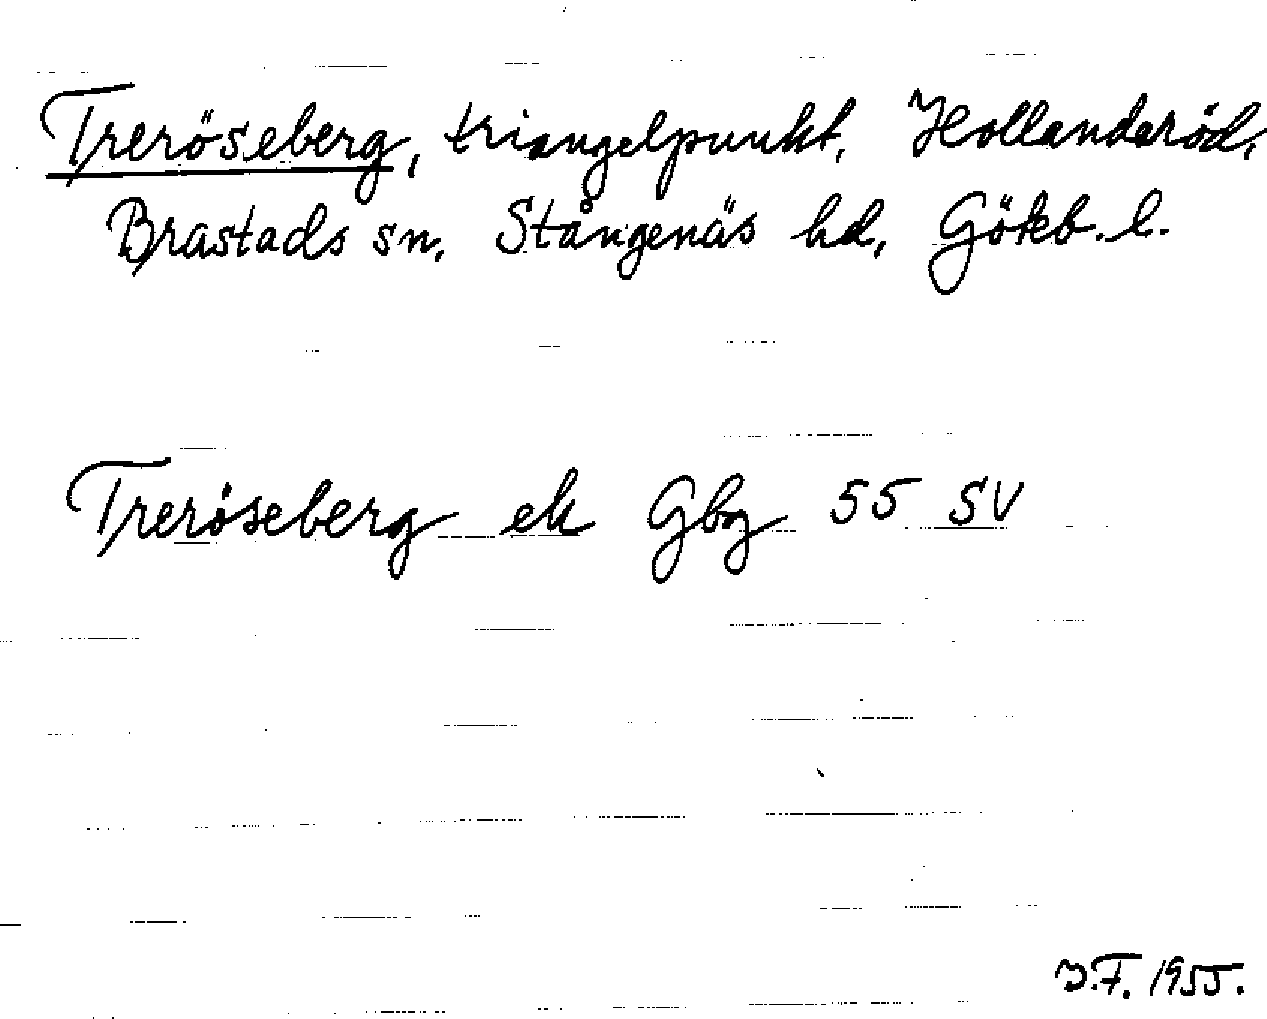 Treröseberg, triangelpunkt, Hollanderöd,
Brastads sn, Stångenäs hd, Göteb. l.
Treröseberg ek Gbg 55 SV
J.F. 1955.